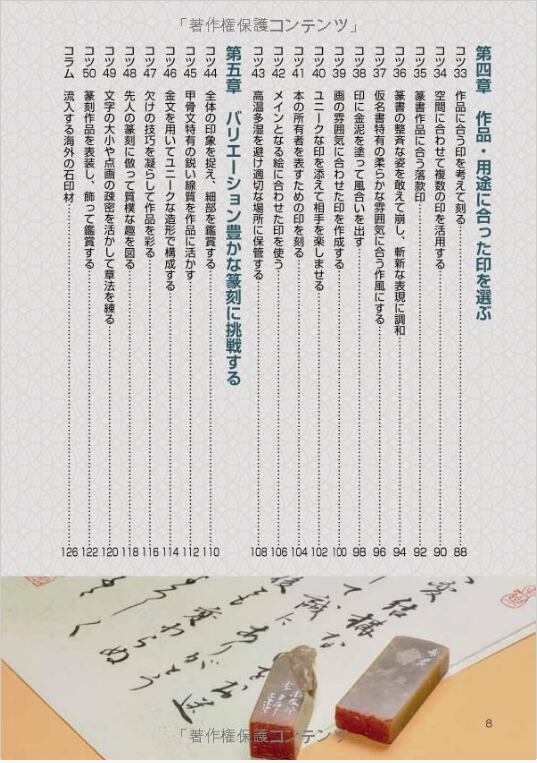 「著作権保護コンテンツ」
第四章　作品・用途に合った印を選ぶ
コツ33　作品に合う印を考えて刻る……88
コツ34　空間に合わせて複数の印を活用する……90
コツ35　篆書作品に合う落款印……92
コツ36　篆書の整斉な姿を敢えて崩し、斬新な表現に調和……94
コツ37　仮名書特有の柔らかな雰囲気に合う作風にする……96
コツ38　印に金泥を塗って風合いを出す……98
コツ39　画の雰囲気に合わせた印を作成する……100
コツ40　ユニークな印を添えて相手を楽しませる……102
コツ41　本の所有者を表すための印を刻る……104
コツ42　メインとなる絵に合わせた印を使う……106
コツ43　高温多湿を避け適切な場所に保管する……108
第五章　バリエーション豊かな篆刻に挑戦する
コツ44　全体の印象を捉え、細部を鑑賞する……110
コツ45　甲骨文特有の鋭い線質を作品に活かす……112
コツ46　金文を用いてユニークな造形で構成する……114
コツ47　欠けの技巧を凝らして作品を彩る……116
コツ48　先人の篆刻に倣って質樸な趣を図る……118
コツ49　文字の大小や点画の疎密を活かして章法を練る……120
コツ50　篆刻作品を表装し、飾って鑑賞する……122
コラム　流入する海外の石印材……126
8
「著作権保護コンテンツ」